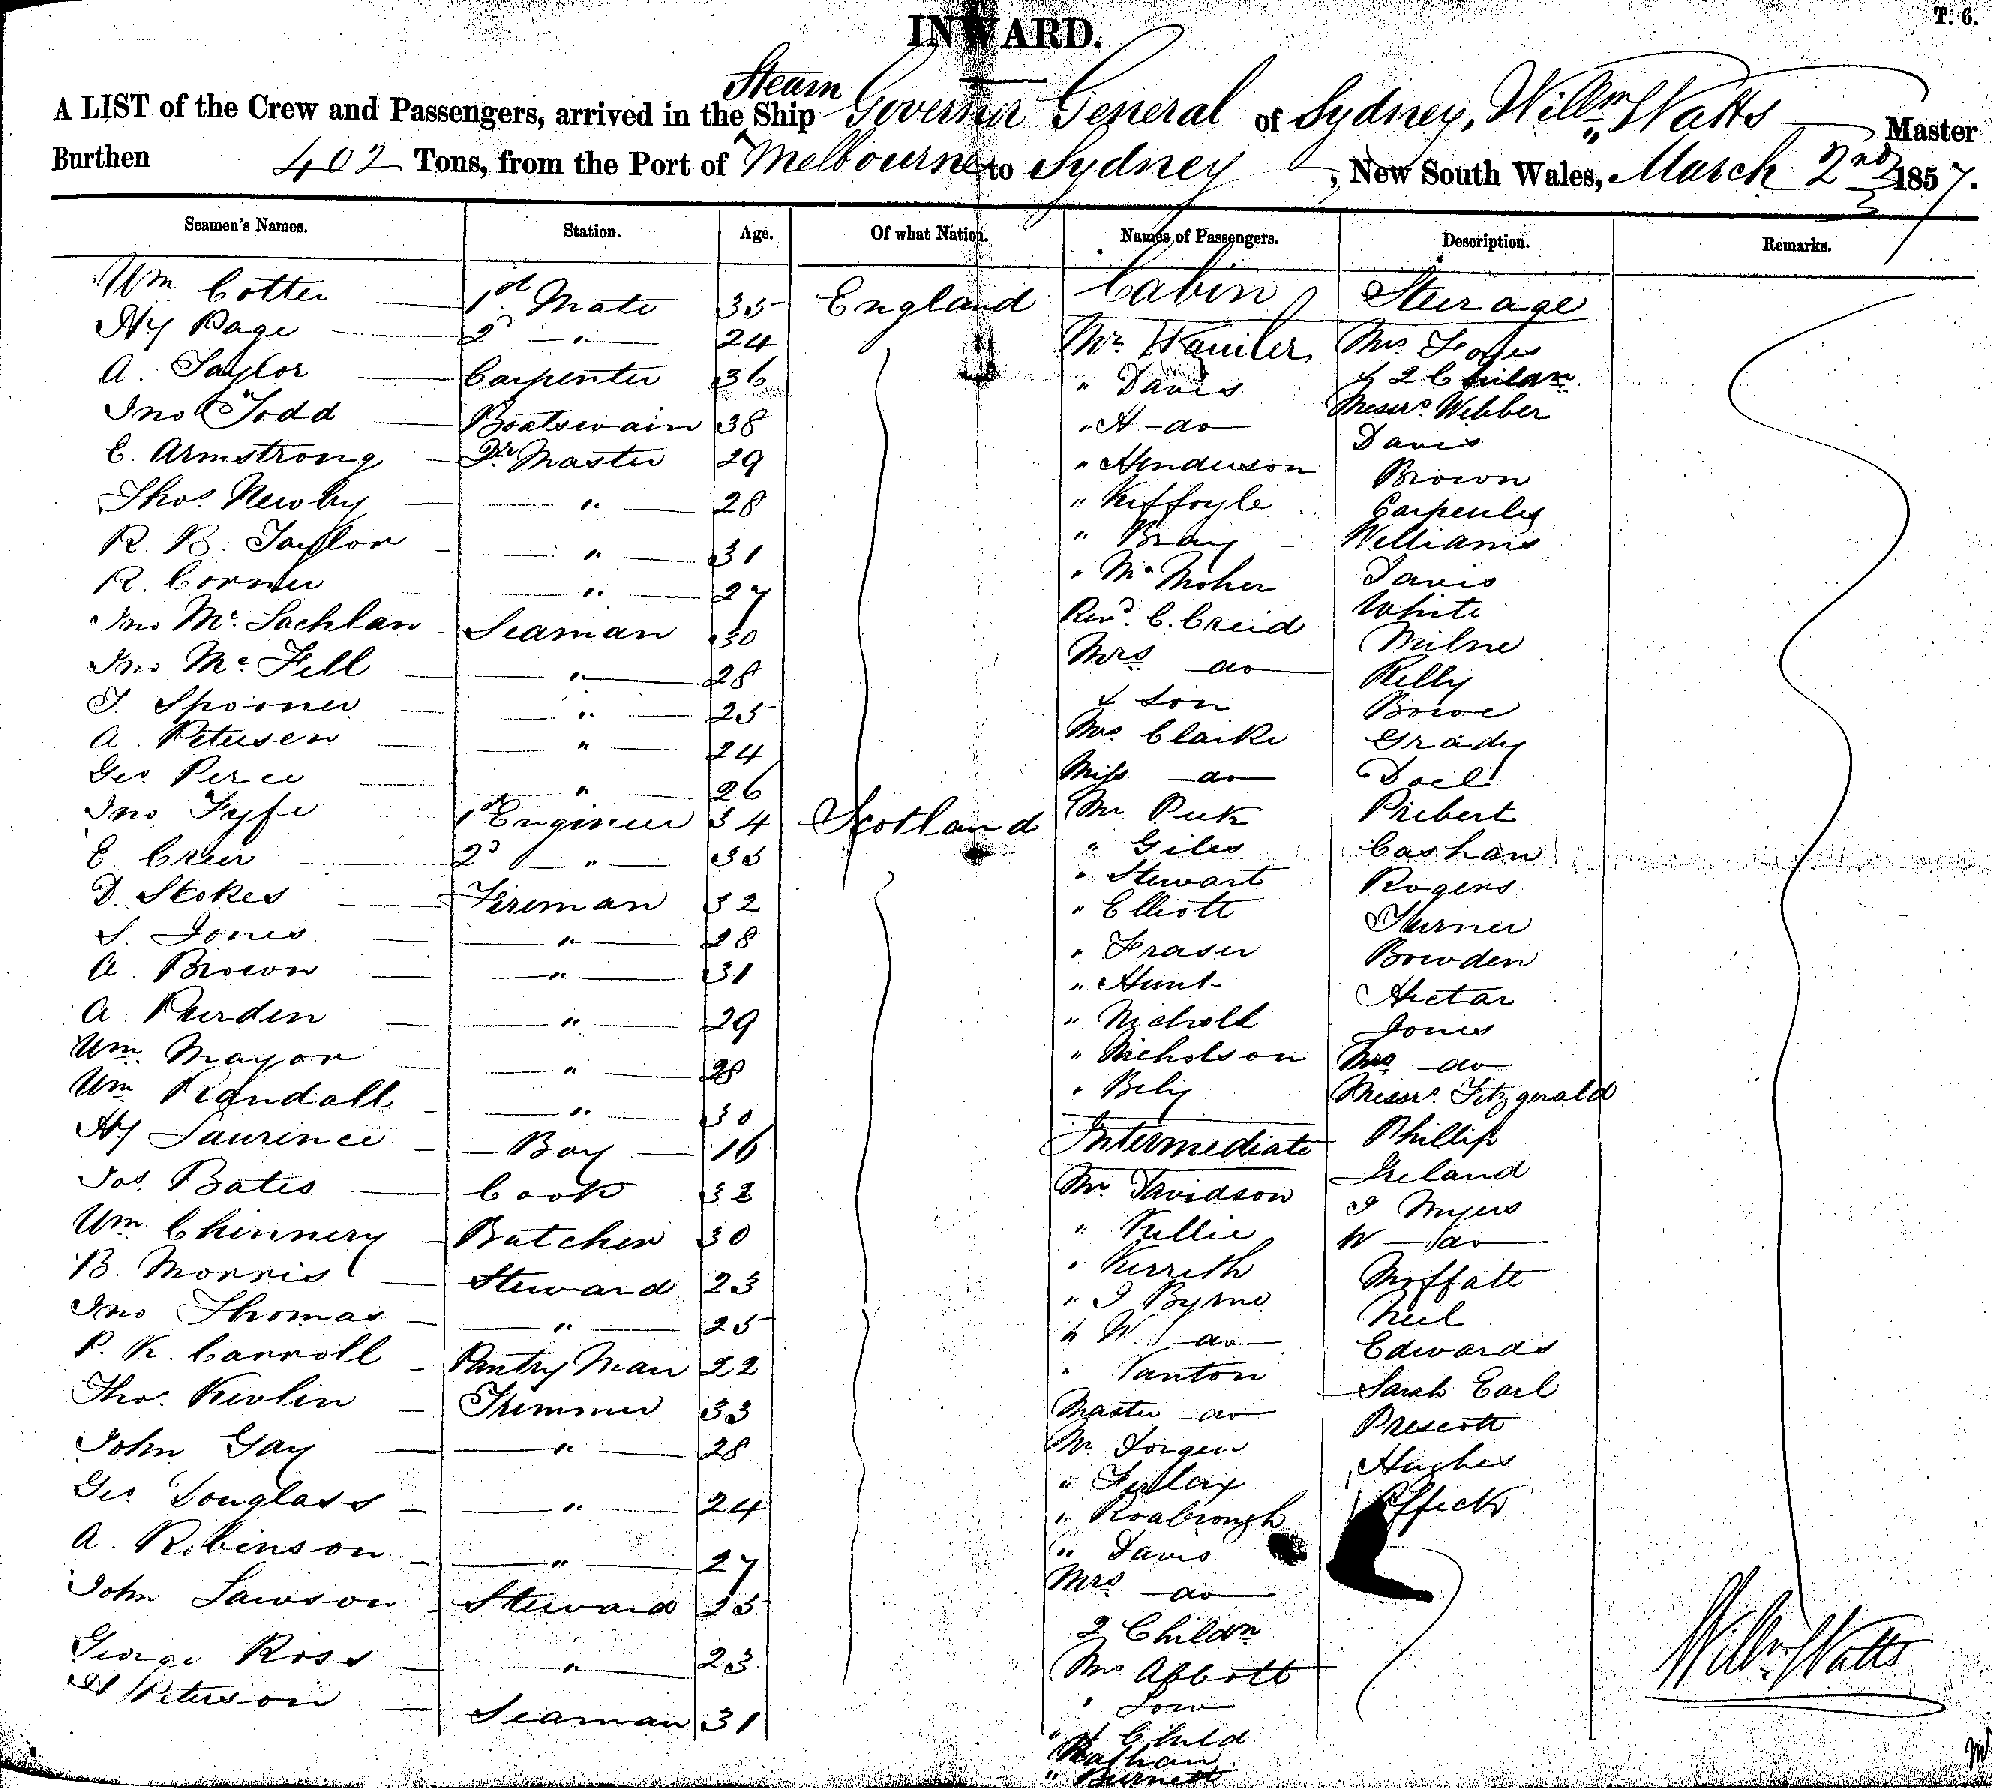 INWARD.
T. 6.
Steam
A LIST of the Crew and Passengers, arrived in the Ship Governor General of Sydney, Willm Watts Master
Burthen 402 Tons, from the Port of Melbourne to Sydney, New South Wales, March 2nd 1857.
Seamen's Names. Station. Age. Of what Nation. Names of Passengers. Description. Remarks.
Wm Cotter 1st Mate 35 England Cabin Steerage
Hy Page 2d " 24 Mr Mrs
A. Taylor Carpenter 36 " Davis & 2 Childn
Jno Todd Boatswain 38 " H - do Messrs Webber
E. Armstrong Qr Master 29 " Henderson Davis
Thos Newby " 28 " Brown
R. B. Taylor " 31 " Bray Carpenter
R. Corner " 27 " Williams
Jno McLachlan Seaman 30 Revd C. Creed Davis
Jno McFell " 28 Mrs do White
T. Spooner " 25 & Son Milne
A. Petersen " 24 Mrs Clarke Kelly
Geo Perce " 26 Miss do Bowe
Jno Fyfe 1st Engineer 34 Scotland Mr Peek Grady
E. Creer 2d " 35 " Giles
D. Stokes Fireman 32 " Stewart Pribert
S. Jones " 28 " Elliott Cashan
A. Brown " 31 " Fraser Rogers
A. Purden " 29 " Hunt Turner
Wm Mayor " 28 " Nicholl Bowden
Wm Randall " 30 " Nicholson Hector
Hy Laurence Boy 16 " Jones
Jas. Bates Cook 32 Intermediate Mrs do
Wm Chinnery Butcher 30 Mr Davidson Messrs Fitzgerald
B. Morris Steward 23 " Phillip
Jno Thomas " 25 " Ireland
P. K. Carroll Pantry Man 22 " J Byrne J Myers
Thos. Kevlin Trimmer 33 " W do W do
John Gay " 28 " Vanton Moffatt
Geo Douglass " 24 Master do Neil
A. Robinson " 27 Mr Edwards
John Lawson Steward 25 " Finlay Sarah Earl
George Ross " 23 " Roxbrough Prescott
Peterson Seaman 31 " Davis Hughes
Mrs do
2 Childn
Mrs Abbott
" Low
" & Child
" Burnett
Willm Watts